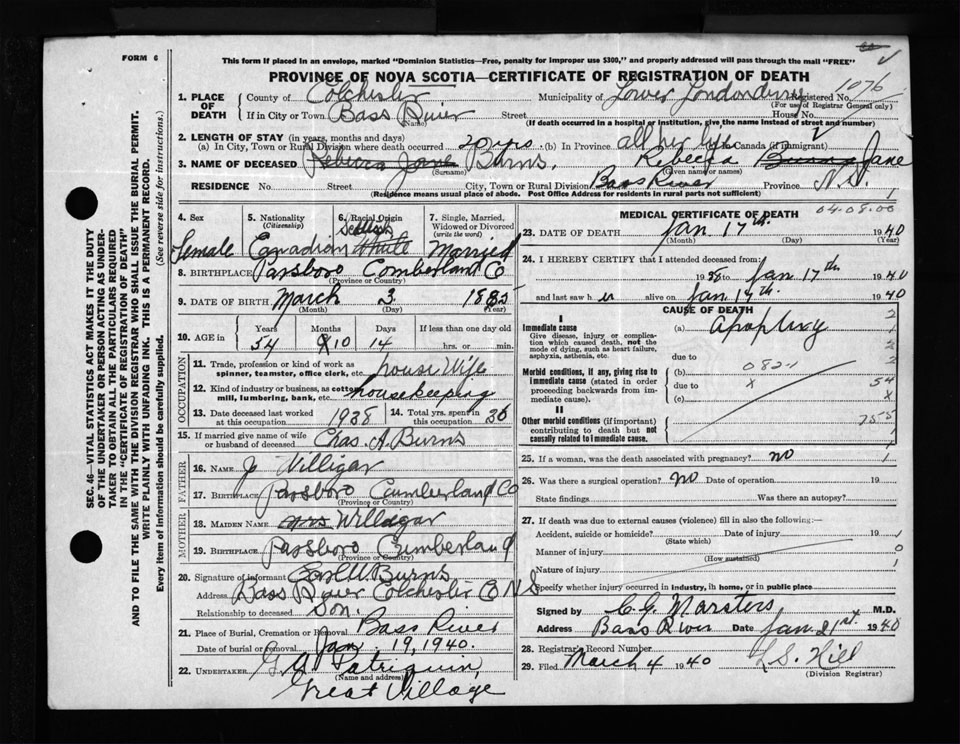 FORM 6
This form if placed in an envelope, marked "Dominion Statistics—Free, penalty for improper use $300," and properly addressed will pass through the mail "FREE"
PROVINCE OF NOVA SCOTIA—CERTIFICATE OF REGISTRATION OF DEATH
1. PLACE OF DEATH County of Colchester Municipality of Lower Londonderry Registered No. 1076
(For use of Registrar General only)
If in City or Town Bass River House No.
(Name) (If death occurred in a hospital or institution, give the name instead of street and number)
2. LENGTH OF STAY (in years, months and days)
(a) In City, Town or Rural Division where death occurred 20 yrs. (b) In Province all her life (c) In Canada (if immigrant)
3. NAME OF DECEASED Rebecca Jane Burns. Rebecca Burns Jane
(Surname) (Given name or names)
RESIDENCE No. Street City, Town or Rural Division Bass River Province N.S.
(Residence means usual place of abode. Post Office Address for residents in rural parts not sufficient) 1
4. Sex Female
5. Nationality (Citizenship) Canadian
6. Racial Origin White
7. Single, Married, Widowed or Divorced (write the word) Married
8. BIRTHPLACE Parsboro Comberland Co
(Province or County)
9. DATE OF BIRTH March 3 1885
(Month) (Day) (Year)
10. AGE in Years Months Days If less than one day old
54 10 14 hrs. or min.
OCCUPATION
11. Trade, profession or kind of work as spinner, teamster, office clerk, etc. house Wife
12. Kind of industry or business, as cotton mill, lumbering, bank, etc. housekeeping
13. Date deceased last worked at this occupation 1938 14. Total yrs. spent in this occupation 36
15. If married give name of wife or husband of deceased Chas. A. Burns
FATHER
16. NAME J Villigar
17. BIRTHPLACE Parsboro Cumberland Co
(Province or Country)
MOTHER
18. MAIDEN NAME Mrs Willagar
19. BIRTHPLACE Parsboro Cumberland
(Province or Country)
20. Signature of informant Burns
Address Bass River Colchester Co N S
Relationship to deceased Son.
21. Place of Burial, Cremation or Removal Bass River
Date of burial or removal Jan. 19, 1940.
22. UNDERTAKER G. A. Patriquin,
(Name and address)
Great Village
MEDICAL CERTIFICATE OF DEATH
04.08.00
23. DATE OF DEATH Jan 17th. 1940
(Month) (Day) (Year)
24. I HEREBY CERTIFY that I attended deceased from:
1938 to Jan 17th 1940
and last saw h er alive on Jan 17th. 1940
CAUSE OF DEATH
I
Immediate cause (a) Apoplexy
Give disease, injury or complication which caused death, not the mode of dying, such as heart failure, asphyxia, asthenia, etc.
due to
Morbid conditions, if any, giving rise to immediate cause (stated in order proceeding backwards from immediate cause).
(b) 082-1
due to x
(c)
II
Other morbid conditions (if important) contributing to death but not causally related to immediate cause.
2
1
2
2
54
x
755
1
25. If a woman, was the death associated with pregnancy? no 1
26. Was there a surgical operation? no Date of operation 19
State findings Was there an autopsy?
27. If death was due to external causes (violence) fill in also the following:—
Accident, suicide or homicide? Date of injury 19 1
(State which)
Manner of injury 0
(How sustained)
Nature of injury 1
Specify whether injury occurred in industry, in home, or in public place
Signed by C. G. Marsters M.D.
Address Bass River Date Jan. 21st. 1940
28. Registrar's Record Number
29. Filed March 4 1940 L.S. Hill
(Division Registrar)
SEC. 46—VITAL STATISTICS ACT MAKES IT THE DUTY
OF THE UNDERTAKER OR PERSON ACTING AS UNDERTAKER
TO OBTAIN ALL THE PARTICULARS REQUIRED
IN THE "CERTIFICATE OF REGISTRATION OF DEATH"
AND TO FILE THE SAME WITH THE DIVISION REGISTRAR WHO SHALL ISSUE THE BURIAL PERMIT.
WRITE PLAINLY WITH UNFADING INK. THIS IS A PERMANENT RECORD.
Every item of information should be carefully supplied. (See reverse side for instructions.)